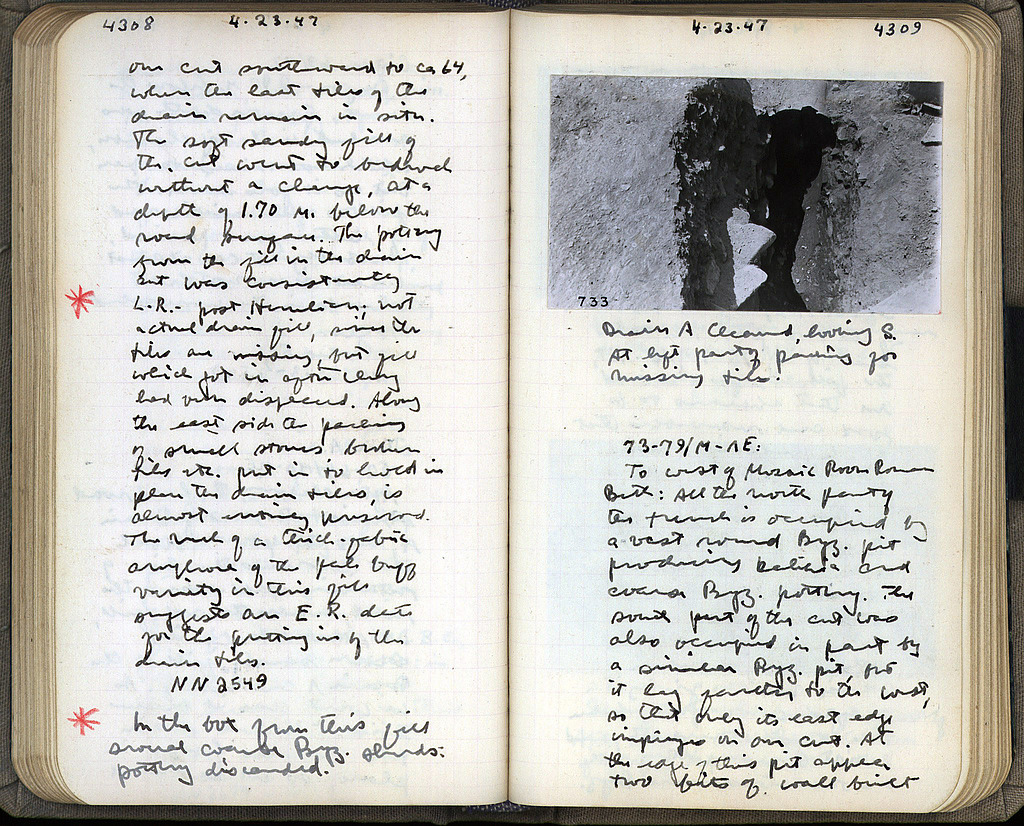 4308
4.23.47
our cut southward to ca 64,
where the last tiles of the
drain remain in situ.
The soft sandy fill of
the cut went to bedrock
without a change, at a
depth of 1.70 M. below the
road surface. The pottery
from the fill in the drain
cut was consistently
L.R. - post Herulian; not
actual drain fill, since the
tiles are missing, but fill
which got in after they
had been displaced. Along
the east side the packing
of small stones broken
tiles etc. put in to hold in
place the drain tiles, is
almost entirely preserved.
The neck of a thick-
amphora of the pale buff
variety in this fill
suggests an E.R. date
for the putting in of the
drain tiles.
NN 2549
In the box from this fill
several coarse Byz. sherds:
pottery discarded.
4.23.47
4309
733
Drain A Cleared, looking S.
At left part of packing for
missing tile.
73-79/M-ΛE:
To west of Mosaic Room Roman
Bath: All the north part of
the trench is occupied by
a vast round Byz. pit
producing and
coarse Byz. pottery. The
south part of the cut was
also occupied in part by
a similar Byz. pit, but
it lay further to the west,
so that only its east edge
impinges on our cut. At
the edge of this pit appear
two bits of wall built